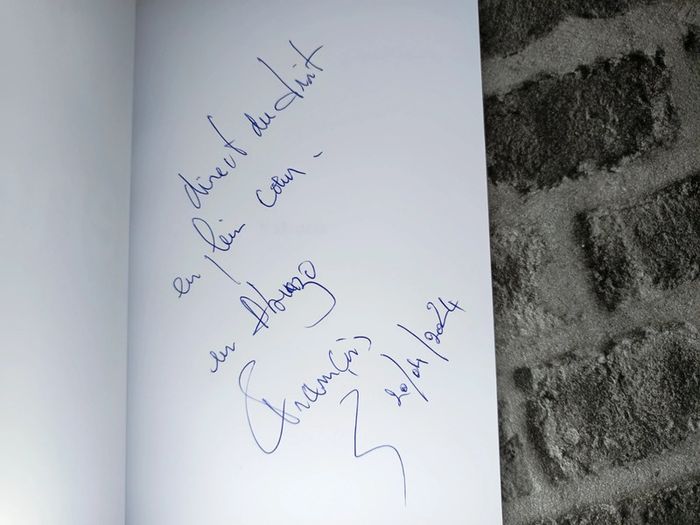 direct du droit
en plein cœur -
en Abruzzo
François
20/04/2024